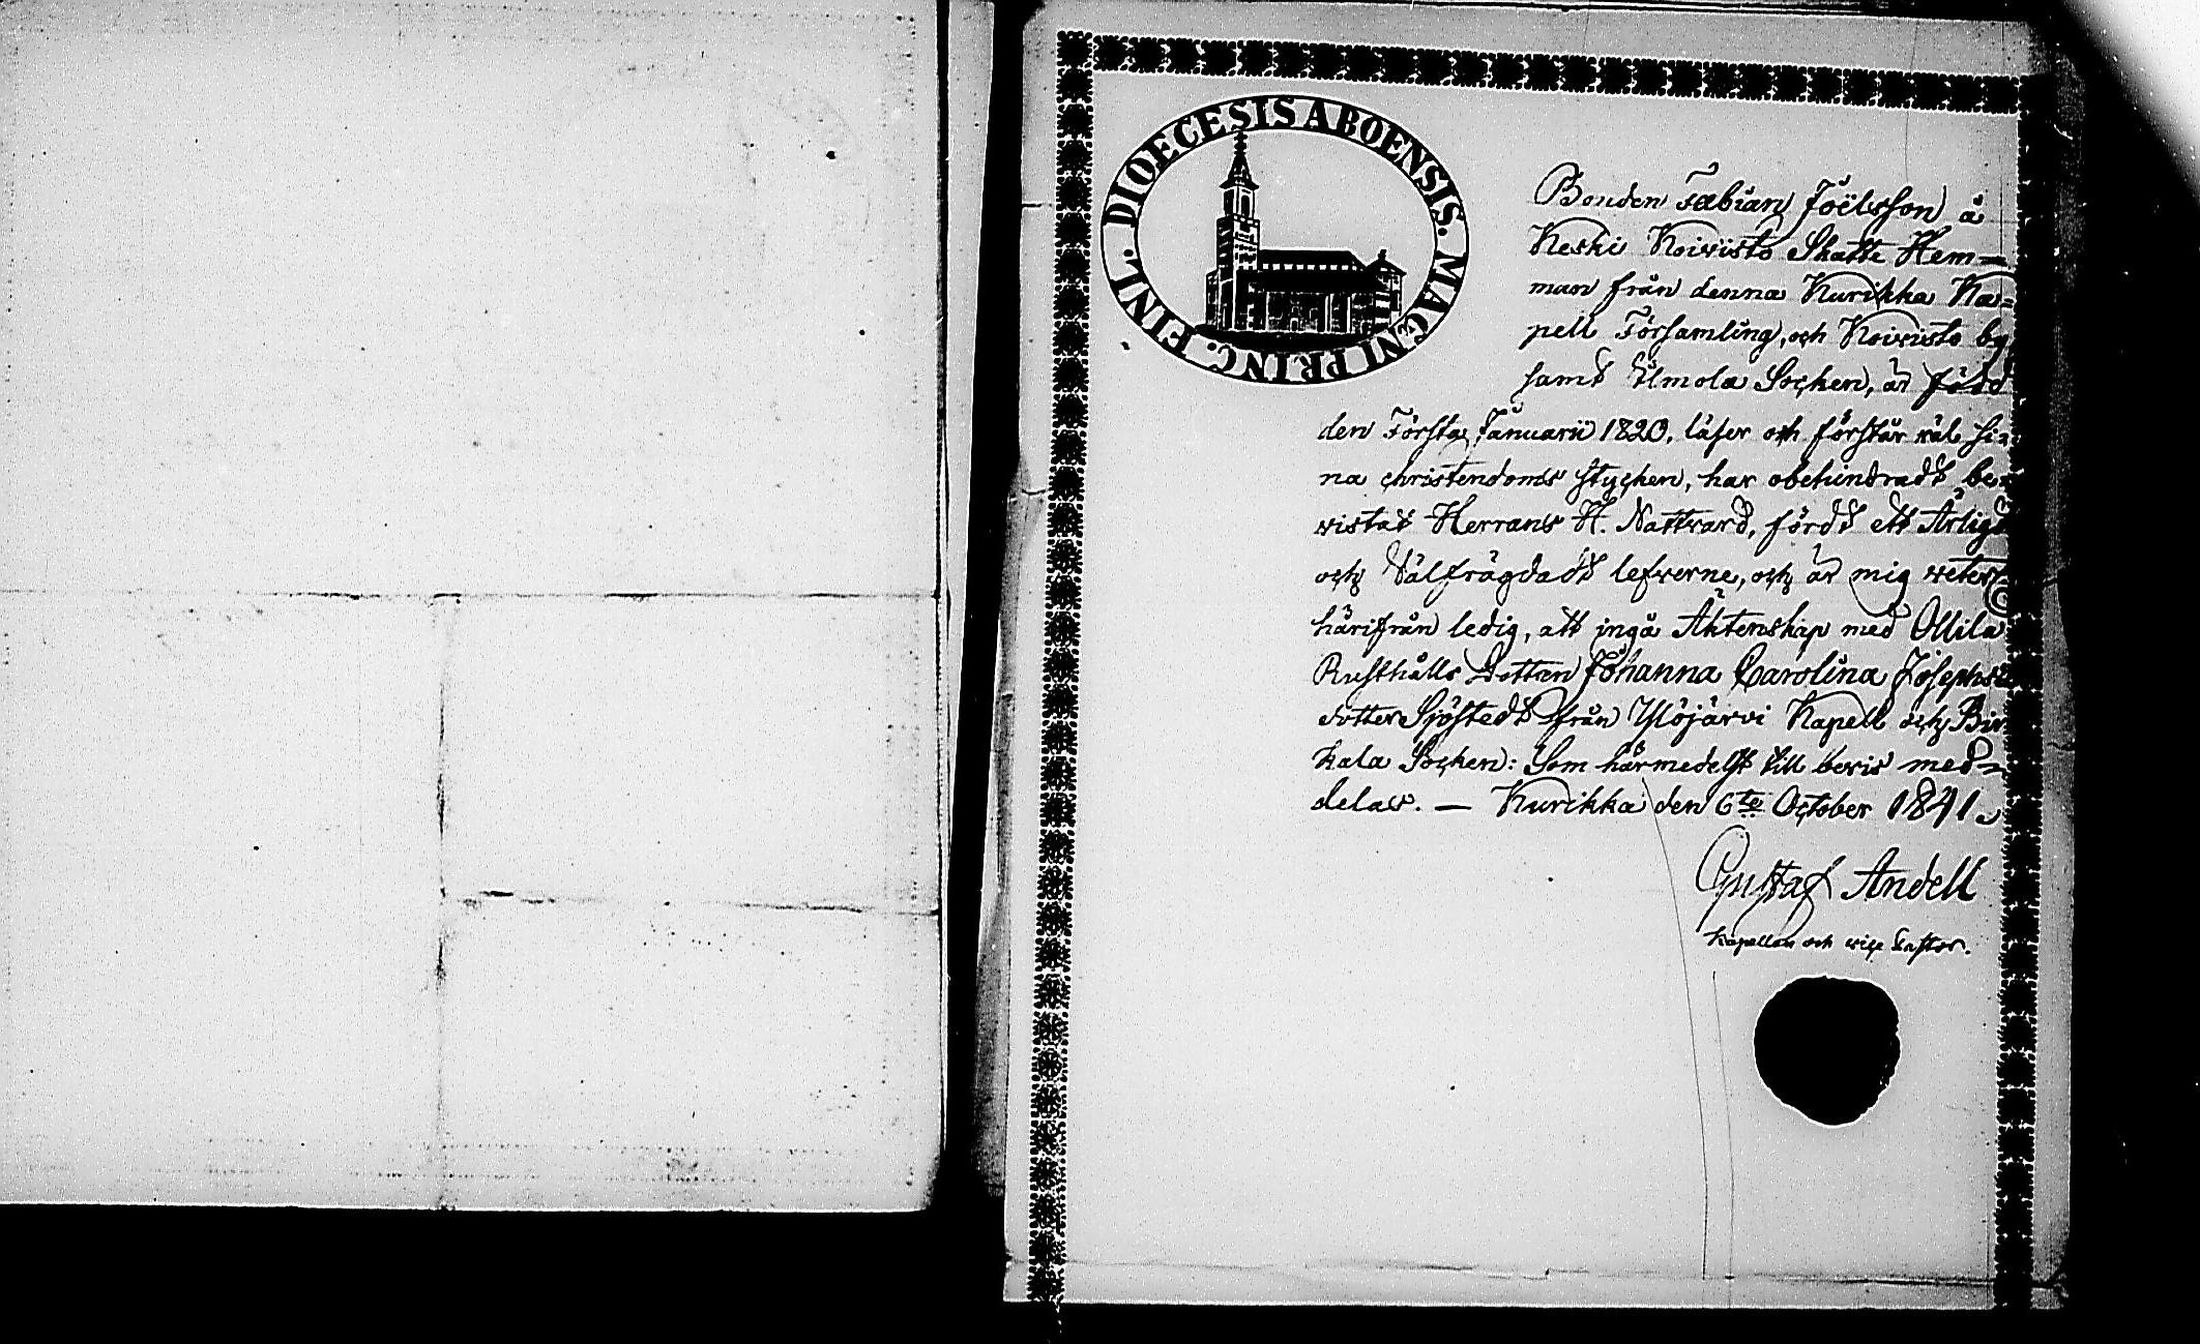 DIOECESIS ABOENSIS. MAGNI PRINC. FINL.
Bonden Fabian Joëlsson å
Keski Koivisto Skatte Hem=
man från denna Kurikka Ka=
pell Församling, och Koivisto by
samt Ilmola Socken, är född
den Första Januarii 1820, läser och förstår väl si=
na christendoms stycken, har obehindradt be=
vistat Herrans H. Nattvard, fördt ett Ärligt
och Välfrägdadt lefverne, och är mig veter=
härifrån ledig, att ingå Äktenskap med Ollila
Rusthålls Dottren Johanna Carolina Josephs
dotter Sjöstedt från Ylöjärvi Kapell och Bir
kala Socken: Som härmedelst till bevis med=
delas. — Kurikka den 6te October 1841.
Gustaf Andell
Kapellan och vice Pastor.